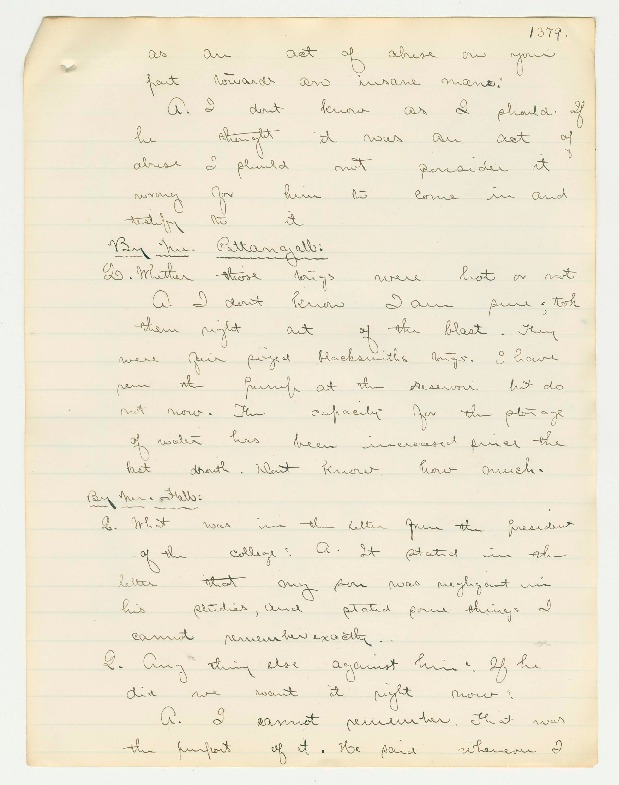 1379.
as an act of abuse on your
part towards an insane man?
A. I dont know as I should. If
he thought it was an act of
abuse I should not consider it
wrong for him to come in and
testify to it
By Mr. Pattangall:
Q. Whether those tongs were hot or not
A. I dont know I am sure; took
them right out of the blast. They
were fair sized blacksmiths tongs. I have
run the pumps at the reservoir but do
not now. The capacity for the storage
of water has been increased since the
last drouth. Dont know how much.
By Mr.
Q. What was in the letter from the President
of the college? A. It stated in the
letter that my son was negligant in
his studies, and stated some things I
cannot remember exactly..
Q. Any thing else against him? If he
did we want it right now?
A. I cannot remember. That was
the purport of it. He said whenever I